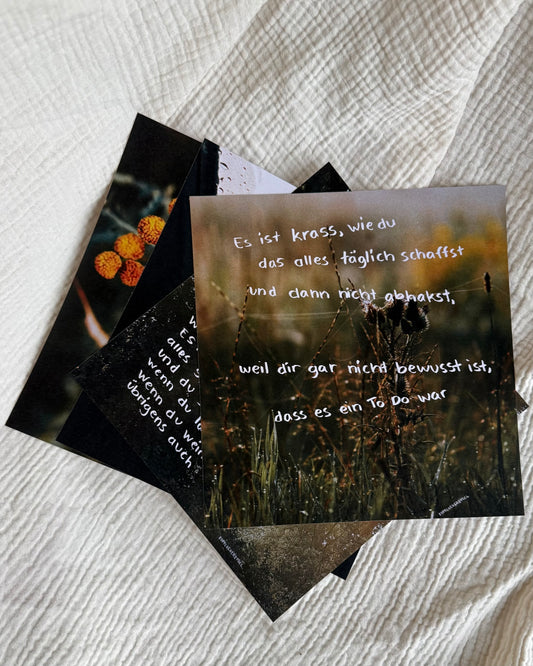 Es ist krass, wie du
das alles täglich schaffst
und dann nicht abhakst,
weil dir gar nicht bewusst ist,
dass es ein To Do war
W
Es
alles s
und du
wenn du
wenn du wein
übrigens auch